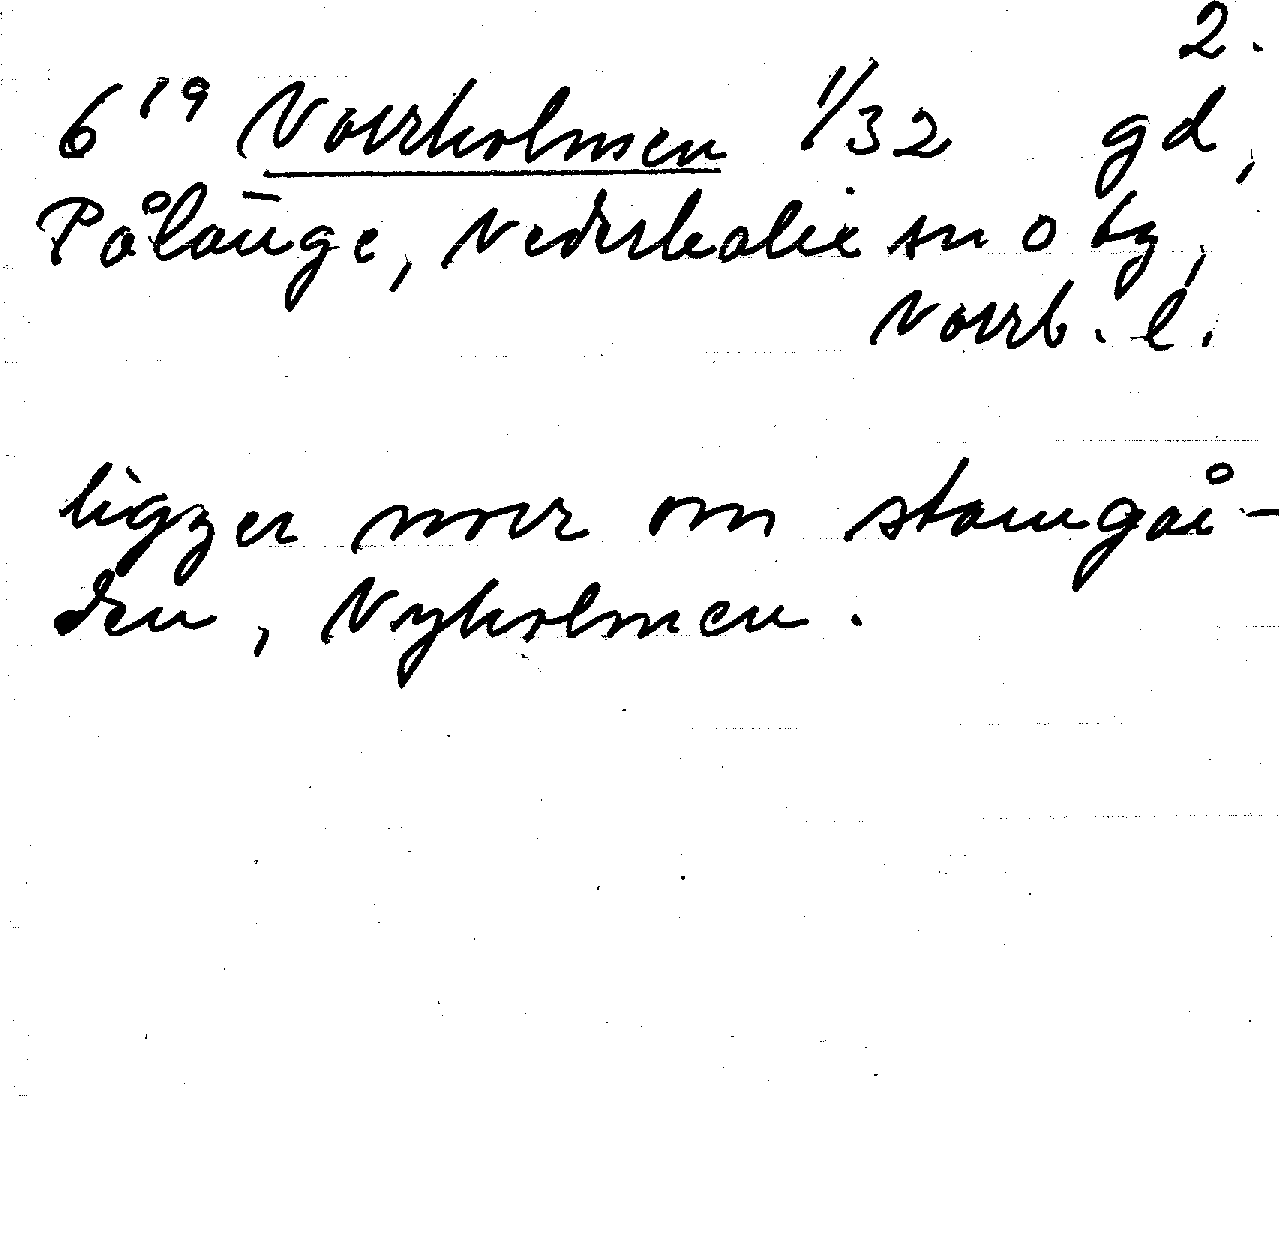 2.
6¹⁹ Norrholmen 1/32 gd,
Pålänge, Nederkalix sn o tg,
Norrb. l.
ligger norr om stamgår-
den, Nyholmen.